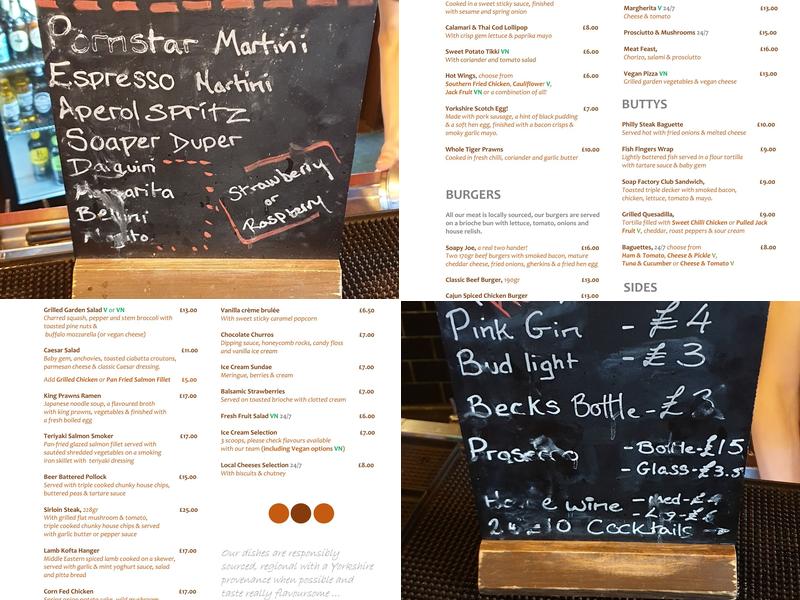 Pornstar Martini
Espresso Martini
Aperol Spritz
Soaper Duper
Daiquiri
Margarita
Bellini
Mojito
Strawberry
or
Raspberry
Cooked in a sweet sticky sauce, finished
with sesame and spring onion
Calamari & Thai Cod Lollipop £8.00
With crisp gem lettuce & paprika mayo
Sweet Potato Tikki VN £6.00
With coriander and tomato salad
Hot Wings, choose from £6.00
Southern Fried Chicken, Cauliflower V,
Jack Fruit VN or a combination of all!
Yorkshire Scotch Egg! £7.00
Made with pork sausage, a hint of black pudding
& a soft hen egg, finished with a bacon crisps &
smoky garlic mayo.
Whole Tiger Prawns £10.00
Cooked in fresh chilli, coriander and garlic butter
BURGERS
All our meat is locally sourced, our burgers are served
on a brioche bun with lettuce, tomato, onions and
house relish.
Soapy Joe, a real two hander! £16.00
Two 170gr beef burgers with smoked bacon, mature
cheddar cheese, fried onions, gherkins & a fried hen egg
Classic Beef Burger, 190gr £13.00
Cajun Spiced Chicken Burger £13.00
Margherita V 24/7 £13.00
Cheese & tomato
Prosciutto & Mushrooms 24/7 £15.00
Meat Feast, £16.00
Chorizo, salami & prosciutto
Vegan Pizza VN £13.00
Grilled garden vegetables & vegan cheese
BUTTYS
Philly Steak Baguette £10.00
Served hot with fried onions & melted cheese
Fish Fingers Wrap £9.00
Lightly battered fish served in a flour tortille
with tartare sauce & baby gem
Soap Factory Club Sandwich, £9.00
Toasted triple decker with smoked bacon,
chicken, lettuce, tomato & mayo.
Grilled Quesadilla, £9.00
Tortilla filled with Sweet Chilli Chicken or Pulled Jack
Fruit V, cheddar, roast peppers & sour cream
Baguettes, 24/7 choose from £8.00
Ham & Tomato, Cheese & Pickle V,
Tuna & Cucumber or Cheese & Tomato V
SIDES
Grilled Garden Salad V or VN £13.00
Charred squash, pepper and stem broccoli with
toasted pine nuts &
buffalo mozzarella (or vegan cheese)
Caesar Salad £11.00
Baby gem, anchovies, toasted ciabatta croutons,
parmesan cheese & classic Caesar dressing.
Add Grilled Chicken or Pan Fried Salmon Fillet £5.00
King Prawns Ramen £17.00
Japanese noodle soup, a flavoured broth
with king prawns, vegetables & finished with
a fresh boiled egg
Teriyaki Salmon Smoker £17.00
Pan-fried glazed salmon fillet served with
sautéed shredded vegetables on a smoking
iron skillet with teriyaki dressing
Beer Battered Pollock £15.00
Served with triple cooked chunky house chips,
buttered peas & tartare sauce
Sirloin Steak, 228gr £25.00
With grilled flat mushroom & tomato,
triple cooked chunky house chips & served
with garlic butter or pepper sauce
Lamb Kofta Hanger £17.00
Middle Eastern spiced lamb cooked on a skewer,
served with garlic & mint yoghurt sauce, salad
and pitta bread
Corn Fed Chicken £17.00
Vanilla crème brulée £6.50
With sweet sticky caramel popcorn
Chocolate Churros £7.00
Dipping sauce, honeycomb rocks, candy floss
and vanilla ice cream
Ice Cream Sundae £7.00
Meringue, berries & cream
Balsamic Strawberries £7.00
Served on toasted brioche with clotted cream
Fresh Fruit Salad VN 24/7 £6.00
Ice Cream Selection £7.00
3 scoops, please check flavours available
with our team (including Vegan options VN)
Local Cheeses Selection 24/7 £8.00
With biscuits & chutney
Our dishes are responsibly
sourced, regional with a Yorkshire
provenance when possible and
taste really flavoursome...
Pink Gin - £4
Bud light - £3
Becks Bottle - £3
Prosecco - Bottle - £15
- Glass - £3.5
wine - med - £4
Cocktails